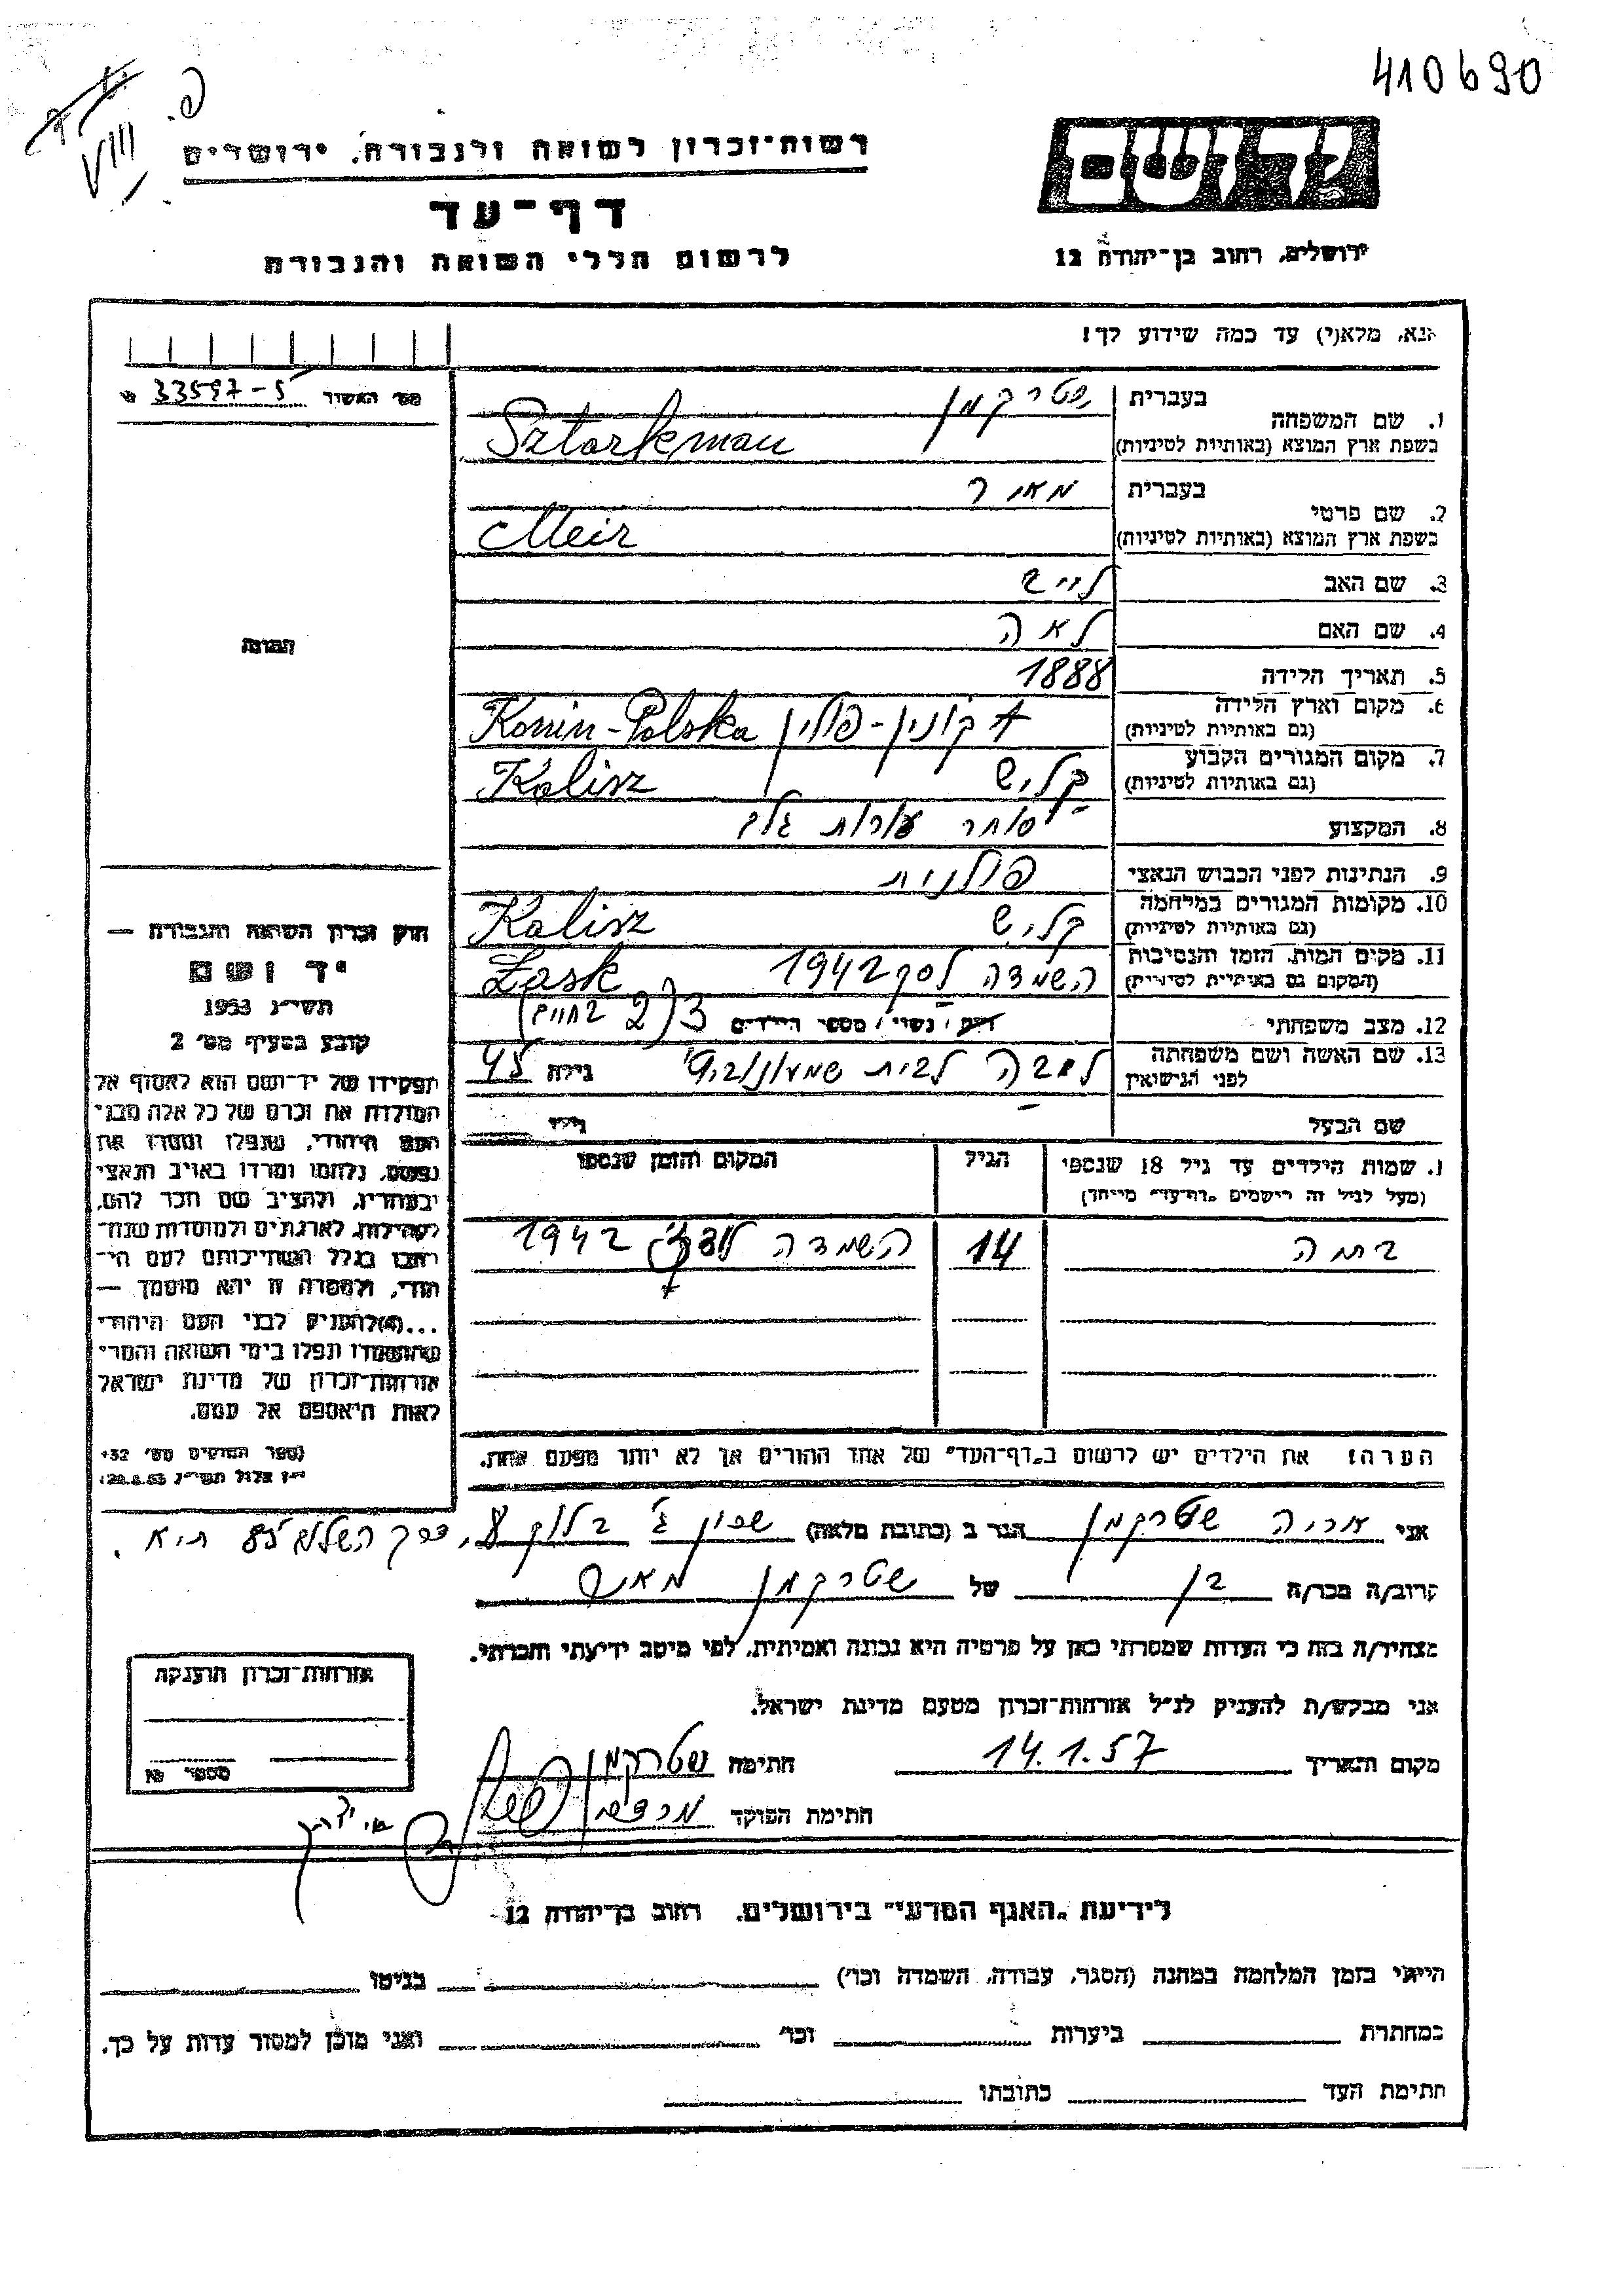 410690
פ.
VIII
יד ושם
רשות־זכרון לשואה ולגבורה, ירושלים
דף־עד
לרשום חללי השואה והגבורה
ירושלים, רחוב בן־יהודה 12
אנא, מלא(י) עד כמה שידוע לך!
מס׳ האשור 33597-5
1. שם המשפחה
בעברית שטרקמן
בשפת ארץ המוצא (באותיות לטיניות) Sztarkman
2. שם פרטי
בעברית מאיר
בשפת ארץ המוצא (באותיות לטיניות) Meir
3. שם האב לייב
4. שם האם לאה
5. תאריך הלידה 1888
6. מקום וארץ הלידה (גם באותיות לטיניות) קונין - פולין Konin-Polska
7. מקום המגורים הקבוע (גם באותיות לטיניות) קליש Kalisz
8. המקצוע סוחר עורות גלם
9. הנתינות לפני הכבוש הנאצי פולנית
10. מקומות המגורים במלחמה (גם באותיות לטיניות) קליש Kalisz
11. מקום המות, הזמן והנסיבות (המקום גם באותיות לטיניות) השמדה לסק 1942 Łask
12. מצב משפחתי רווק / נשוי / מספר הילדים 3 (2 בחיים)
13. שם האשה ושם משפחתה לפני הנישואין לבית גילה 45
שם הבעל גילו
התמונה
חוק זכרון השואה והגבורה —
יד ושם
תשי״ג 1953
קובע בסעיף מס׳ 2
תפקידו של יד־ושם הוא לאסוף אל
המולדת את זכרם של כל אלה מבני
העם היהודי, שנפלו ומסרו את
נפשם, נלחמו ומרדו באויב הנאצי
ובעוזריו, ולהציב שם וזכר להם,
לקהילות, לארגונים ולמוסדות שנח־
רבו בגלל השתייכותם לעם היהו־
די, ולמטרה זו יהא מוסמך —
...(4) להעניק לבני העם היהודי
שהושמדו ונפלו בימי השואה והמרי
אזרחות־זכרון של מדינת ישראל
לאות היאספם אל עמם.
(ספר החוקים מס׳ 132
י״ז אלול תשי״ג 28.8.53)
1. שמות הילדים עד גיל 18 שנספו הגיל המקום והזמן שנספו
(מעל לגיל זה רישמים „דף־עד״ מיוחד)
14 השמדה 1942
הערה: את הילדים יש לרשום ב„דף־העד״ של אחד ההורים אך לא יותר מפעם אחת.
אני אריה שטרקמן הגר ב (כתובת מלאה) שכון ג׳ בלוק דרך השלום 85 ת״א.
קרוב/ה מכר/ה בן של שטרקמן מאיר
מצהיר/ה בזה כי העדות שמסרתי כאן על פרטיה היא נכונה ואמיתית, לפי מיטב ידיעתי והכרתי.
אני מבקש/ת להעניק לנ״ל אזרחות־זכרון מטעם מדינת ישראל.
מקום ותאריך 14.1.57 חתימה שטרקמן
חתימת הפוקד
אזרחות־זכרון הוענקה
מספר
לידיעת „האגף המדעי״ בירושלים, רחוב בן־יהודה 12
הייתי בזמן המלחמה במחנה (הסגר, עבודה, השמדה וכו׳) בגיטו
במחתרת ביערות וכו׳ ואני מוכן למסור עדות על כך.
חתימת העד כתובתו